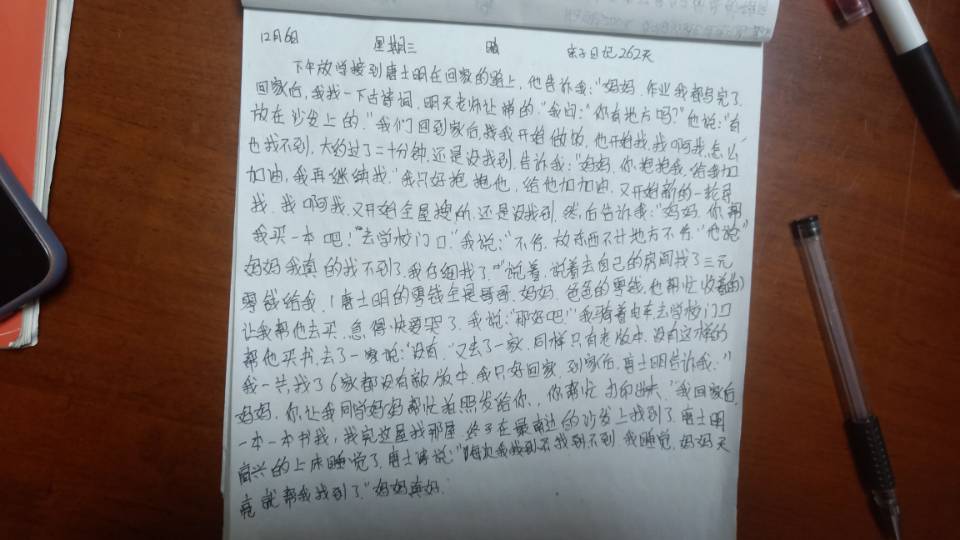 12月6日 星期三 晴 亲子日记262天
下午放学接到唐士明在回家的路上,他告诉我:"妈妈,作业我都写完了,
回家后,我找一下古诗词,明天老师让带的。"我问:"你有地方吗?"他说:"有
放在沙发上的。"我们回到家后,我开始做饭,他开始找,我啊我,怎么
也找不到,大约过了二十分钟,还是没找到,告诉我:"妈妈,你抱抱我,给我加
加油,我再继续找。"我只好抱抱他,给他加加油,又开始新的一轮寻
找,我啊我,又开始全屋搜所,还是没找到,然后告诉我:"妈妈,你帮
我买一本吧!"去学校门口."我说:"不行,放东西不计地方不行。"他说"
妈妈我真的找不到了,我仔细找了。""说着,说着去自己的房间找了三元
零钱给我.(唐士明的零钱全是哥哥.妈妈.爸爸的零钱,他帮忙收着的)
让我帮他去买,急得快要哭了,我说:"那好吧!"我骑着电车去学校门口
帮他买书,去了一家说:"没有."又去了一家,同样只有老版本,没有这样的
我一共找了6家都没有新版本,我只好回家,到家后,唐士明告诉我:"
妈妈,你让我同学妈妈帮忙拍照发给你,你帮忙打印出来."我回家后,
一本一本书找,找完这屋找那屋,终于在最南边的沙发上找到了,唐士明
高兴的上床睡觉了,唐士明说:"每次我找到不找到不到,我睡觉,妈妈天
亮就帮我找到了."妈妈真好.